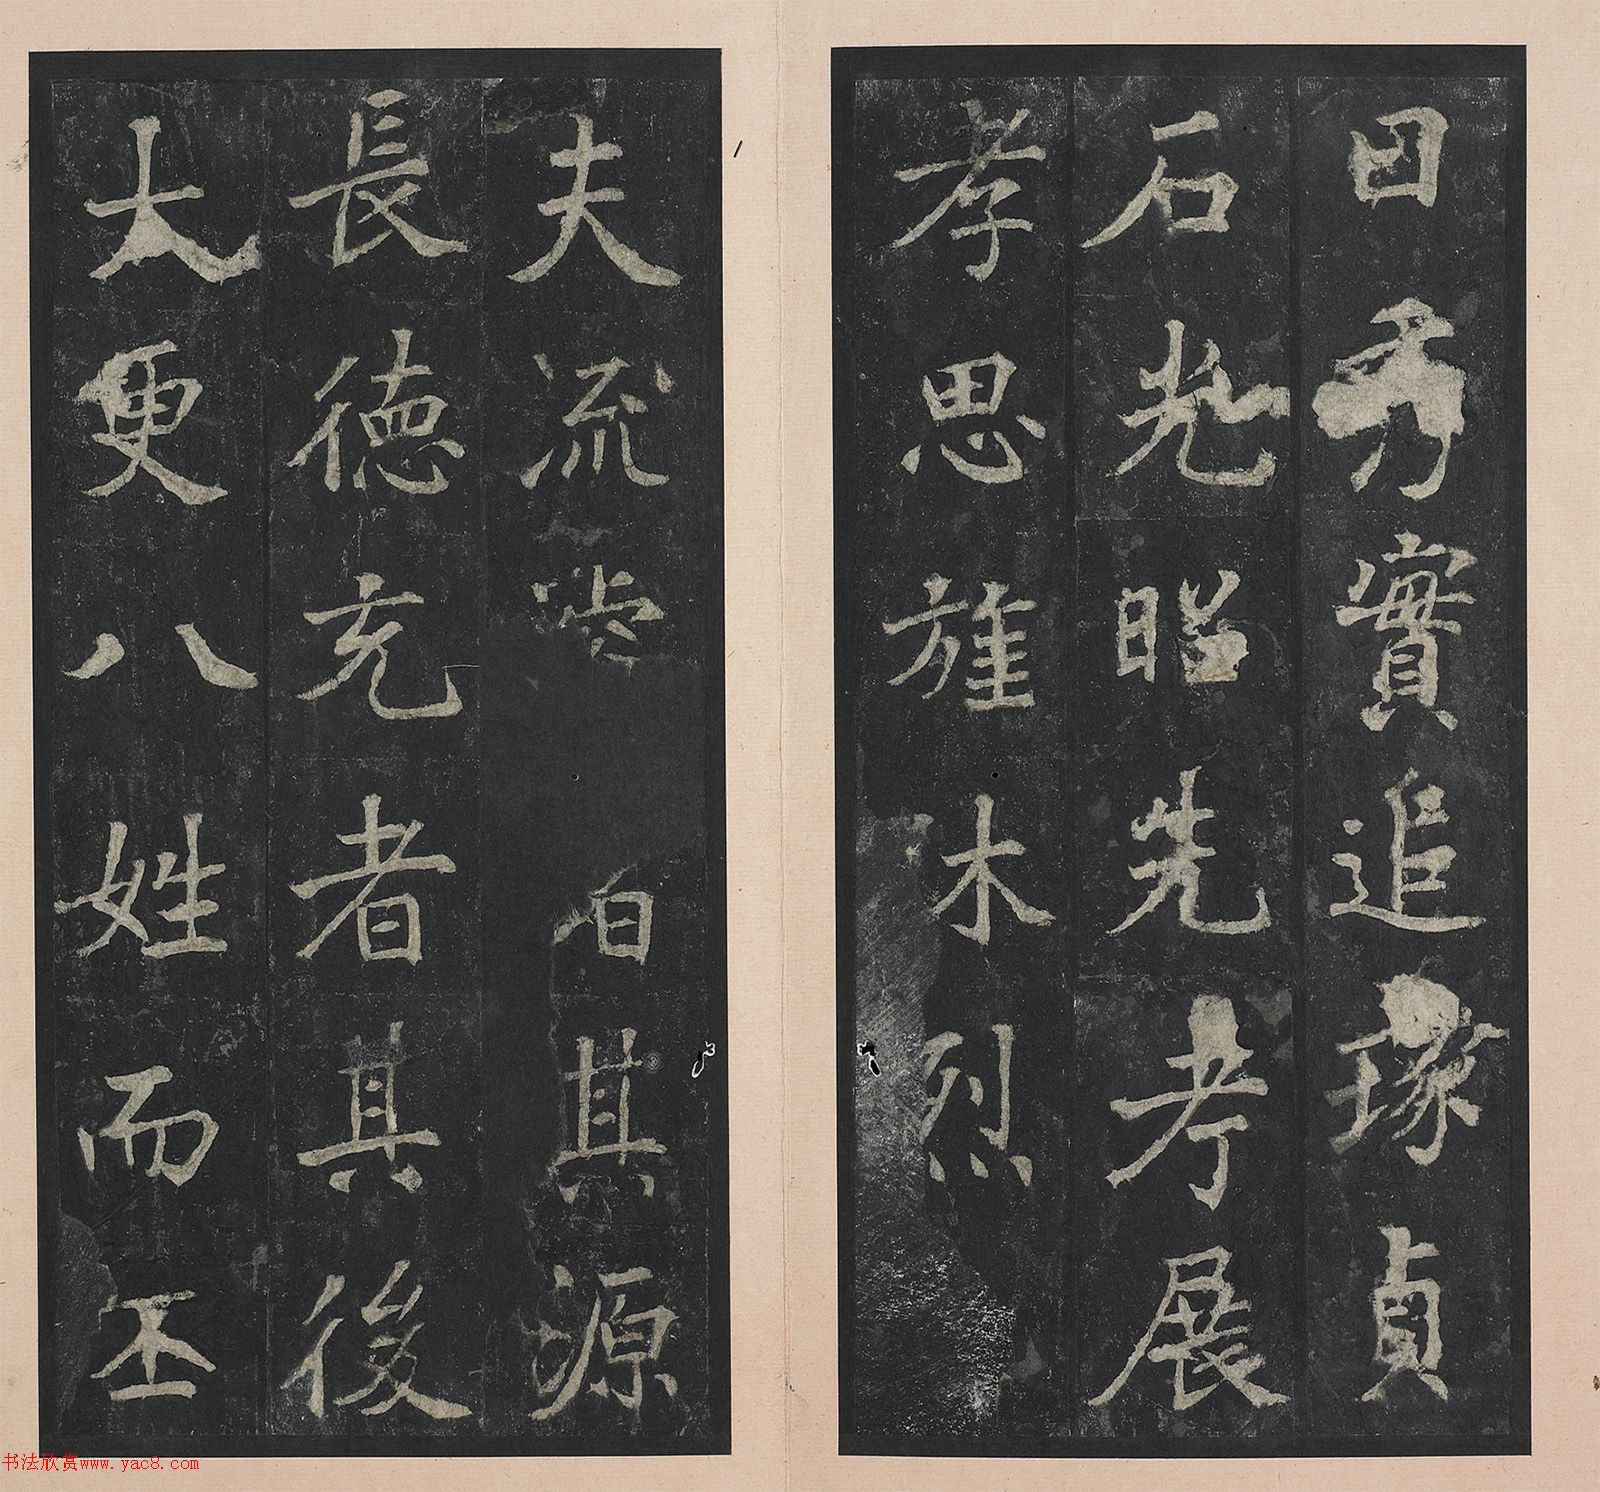 曰秀實追琢貞
石光昭先考展
孝思旌休烈
夫流者其源
長德充者其後
大更八姓而丕
书法欣赏www.yac8.com